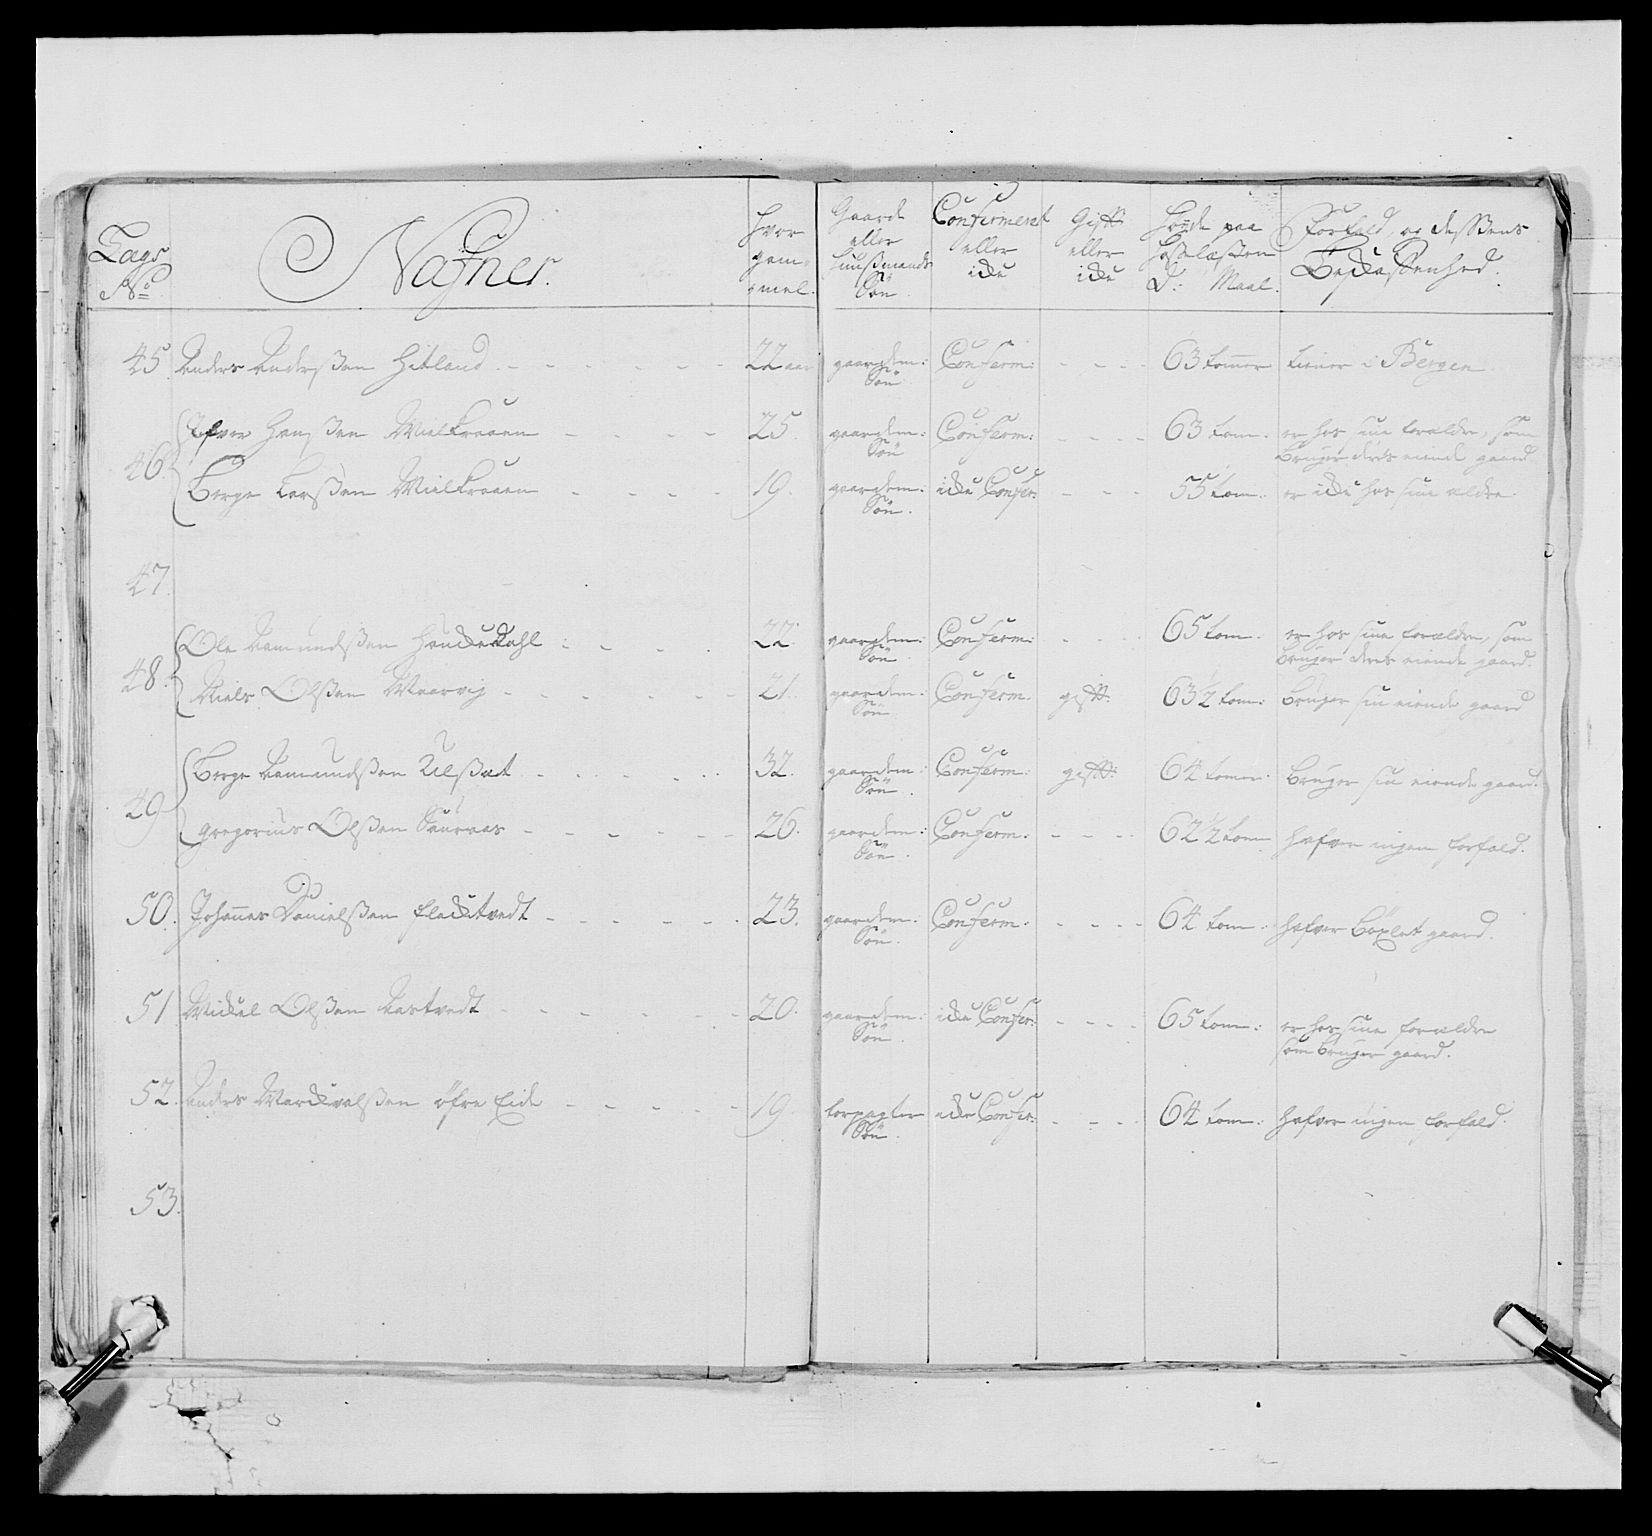 Lægs No
Nafner.
hvor gam- mel.
Gaards eller huusmands Søn
Confirmerat eller icke
Gift eller icke
Høyde paa Hoselæsten D: Maal.
Forfald, og dessens Beskaffenhed.
45. Anders Andersßen Hitland - - - - - - - 22 aar gaardem: Søn Conferm: - - - - 63 tommer tiener i Bergen.
46. Ifver Hanßen Mielkraaen - - - - 25. gaardem: Søn Conferm: - - - - 63 tom. er hos sine forældre, som
bruger deris eiende gaard
Børge Larsßen Mielkraaen - - - - 19. gaardem: Søn. icke Confer: - - - 55 tom. er icke hos sine ældre.
47.
48. Ole Aamundsßen - - - - 22. gaardem: Søn Conferm: - - - 65 tom. er hos sine forældre, som
bruger deris eiende gaard.
Niels Olsßen - - - - - - - 21. gaardem: Søn Conferm. gift. 63½ tom: bruger sin eiende gaard
49 Børge Aamundsßen - - - - - - 32. gaardem: Søn. Conferm: gift: 64 tomer. bruger sin eiende gaard.
Gregorius Olsßen - - - - - - 26. gaardem: Søn. Conferm: - - - - 62½ tom hafver ingen forfald.
50. Johannes Danielsßen Flecktvedt - - - - - - 23. gaardem: Søn. Conferm: - - - - 64 tom. hafver böxlet gaard.
51 Mickel Olsßen Aastvedt - - - - - - 20. gaardem: Søn. icke Confer: - - - - 65 tom: er hos sine forældre
som bruger gaard.
52. Anders Markvalsßen öfre Eide - - - - - 19. Søn. icke Confer: - - - - 64 tom: hafver ingen forfald.
53.